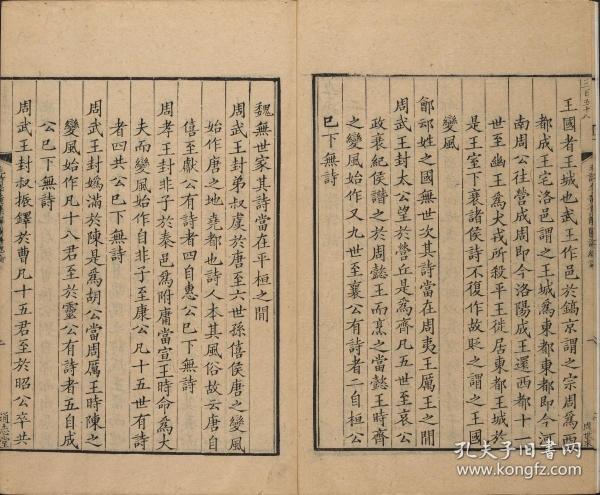 王國者王城也武王作邑於鎬京謂之宗周爲西
都成王宅洛邑謂之王城爲東都東都即今河
南周公往營成周即今洛陽成王還西都十一
世至幽王爲犬戎所殺平王徙居東都王城於
是王室下衰諸侯詩不復作故貶之謂之王國
變風
鄶祁姓之國無世次其詩當在周夷王厲王之間
周武王封太公望於營丘是爲齊凡五世至哀公
政衰紀侯譖之於周懿王而烹之當懿王時齊
變風始作又九世至襄公有詩者二自桓公
已下無詩
魏無世家其詩當在平桓之間
周武王封弟叔虞於唐至六世孫僖侯唐之變風
始作唐之地堯都也詩人本其風俗故云唐自
僖至獻公有詩者四自惠公已下無詩
周孝王封非子於秦邑爲附庸當宣王時命爲大
夫而變風始作自非子至康公凡十五世有詩
者四共公已下無詩
周武王封媯滿於陳是爲胡公當周厲王時陳之
變風始作凡十八君至於靈公有詩者五自成
公已下無詩
周武王封叔振鐸於曹凡十五君至於昭公卒共
通志堂
孔夫子旧书网
www.kongfz.com